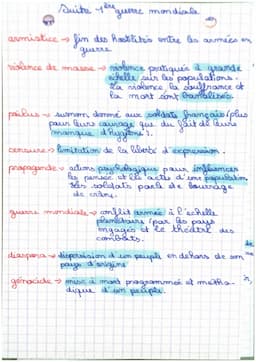 Suite 1ère guerre mondiale
armistice → fin des hostilités entre les armées en
guerre.
violence de masse → violence pratiquée à grande
échelle sur les populations.
La violence, la souffrance et
la mort sont banalisées.
poilus → surnom donné aux soldats français (plus
pour leurs courage que du fait de leurs
manque d'hygiène).
censure → limitation de la liberté d'expression.
propagande → actions psychologique pour influencer
les pensée et les actes d'une population
Les soldats parle de bourrage
de crâne.
guerre mondiale → conflit armée à l'échelle
planétaire (par les pays
engagés et le théâtre des
combats.
diaspora → dispersion d'un peuple en dehors de son
pays d'origine
génocide → mise à mort programmée et métho-
dique d'un peuple.